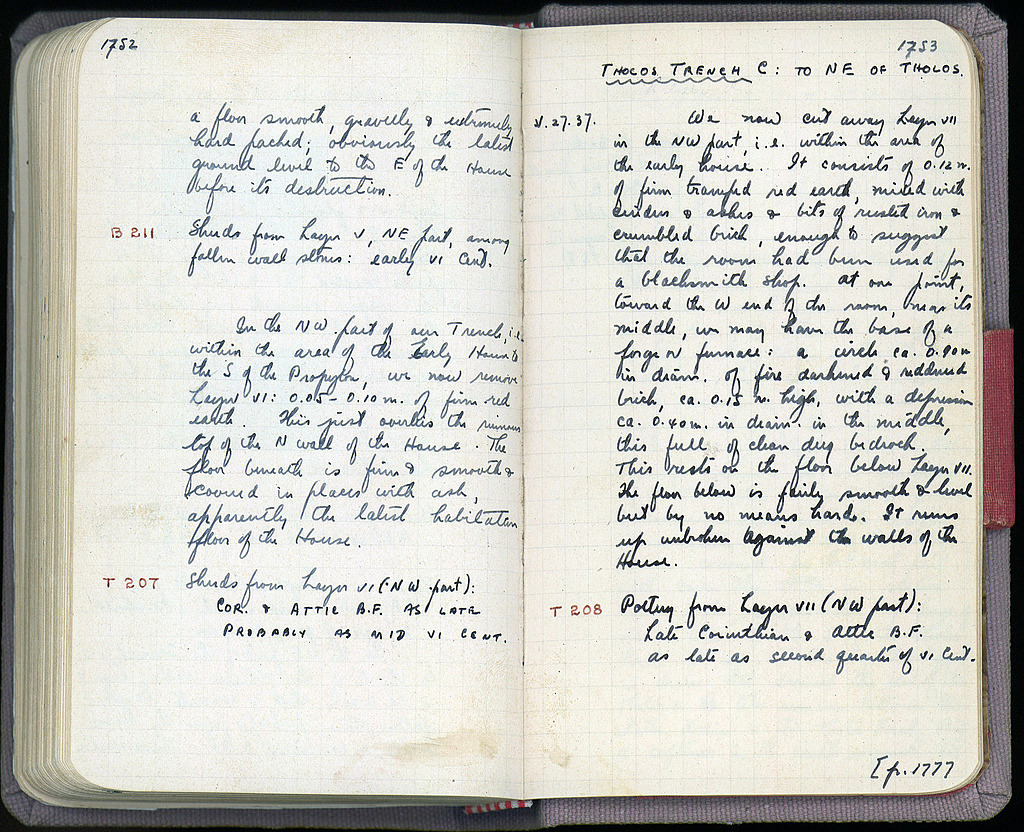 1752
a floor smooth, gravelly & extremely
hard packed; obviously the latest
ground level to the E of the House
before its destruction.
B 211
Sherds from Layer V, NE part, among
fallen wall stones: early VI Cent.
In the NW part of our Trench, i.e.
within the area of the Early House to
the S of the Propylon, we now remove
Layer VI: 0.05-0.10 m. of firm red
earth. This just overlies the ruinous
top of the N wall of the House. The
floor beneath is firm & smooth &
covered in places with ash,
apparently the latest habitation
floor of the House.
T 207
Sherds from Layer VI (NW part):
COR. & ATTIC B.F. AS LATE
PROBABLY AS MID VI CENT.
1753
THOLOS TRENCH C: TO NE OF THOLOS.
V.27.37.
We now cut away Layer VII
in the NW part, i.e. within the area of
the early house. It consists of 0.12 m.
of firm tramped red earth, mixed with
cinders & ashes & bits of rusted iron &
crumbled brick, enough to suggest
that the room had been used for
a blacksmith shop. At one point,
toward the W end of the room, near its
middle, we may have the base of a
forge or furnace: a circle ca. 0.90 m
in diam. of fire darkened & reddened
brick, ca. 0.15 m. high, with a depression
ca. 0.40 m. in diam. in the middle,
this full of clean dug bedrock.
This rests on the floor below Layer VII.
The floor below is fairly smooth & level
but by no means hard. It runs
up unbroken against the walls of the
House.
T 208
Pottery from Layer VII (NW part):
Late Corinthian & Attic B.F.
as late as second quarter of VI Cent.
[p. 1777